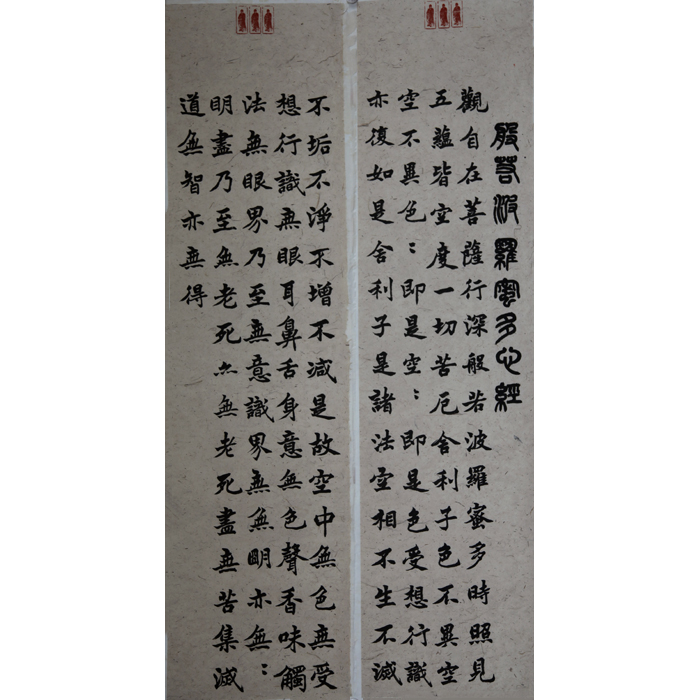 般若波羅蜜多心經
觀自在菩薩行深般若波羅蜜多時照見
五蘊皆空度一切苦厄舍利子色不異空
空不異色：即是空：即是色受想行識
亦復如是舍利子是諸法空相不生不滅
不垢不淨不增不減是故空中無色無受
想行識無眼耳鼻舌身意無色聲香味觸
法無眼界乃至無意識界無無明亦無：
明盡乃至無老死亦無老死盡無苦集滅
道無智亦無得